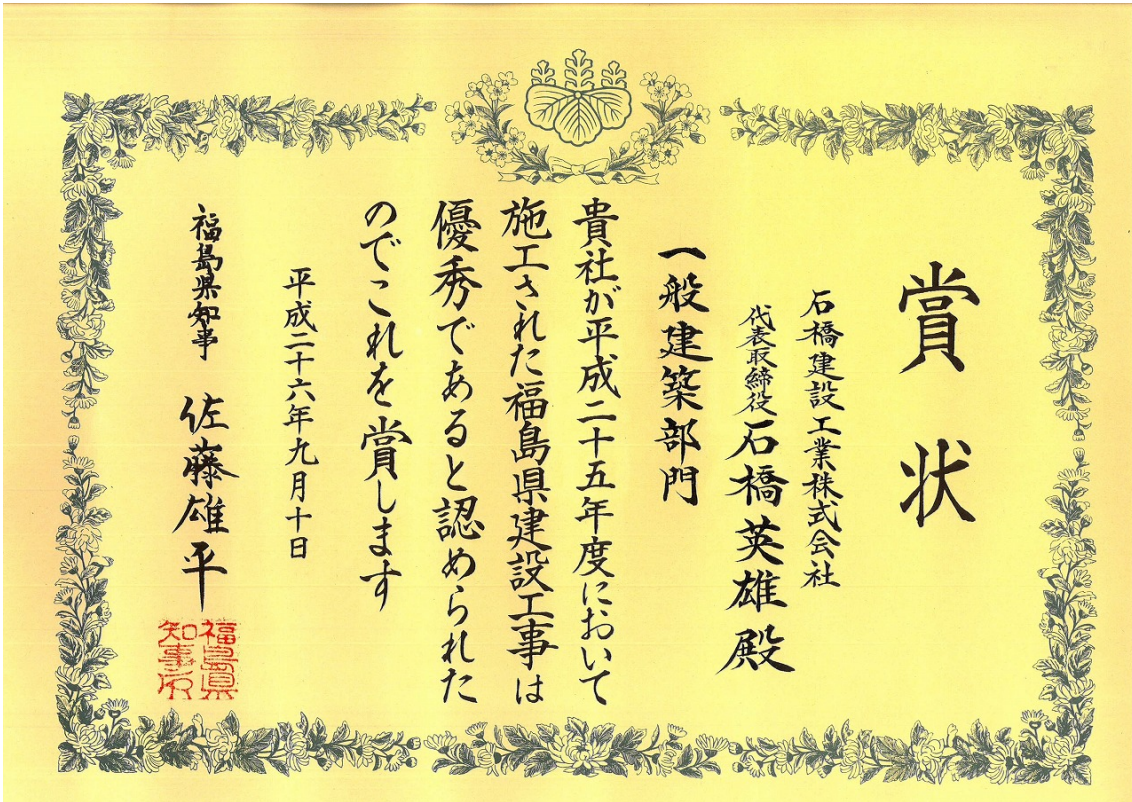 賞状
石橋建設工業株式会社
代表取締役 石橋英雄殿
一般建築部門
貴社が平成二十五年度において
施工された福島県建設工事は
優秀であると認められた
のでこれを賞します
平成二十六年九月十日
福島県知事 佐藤雄平
福島県
知事印